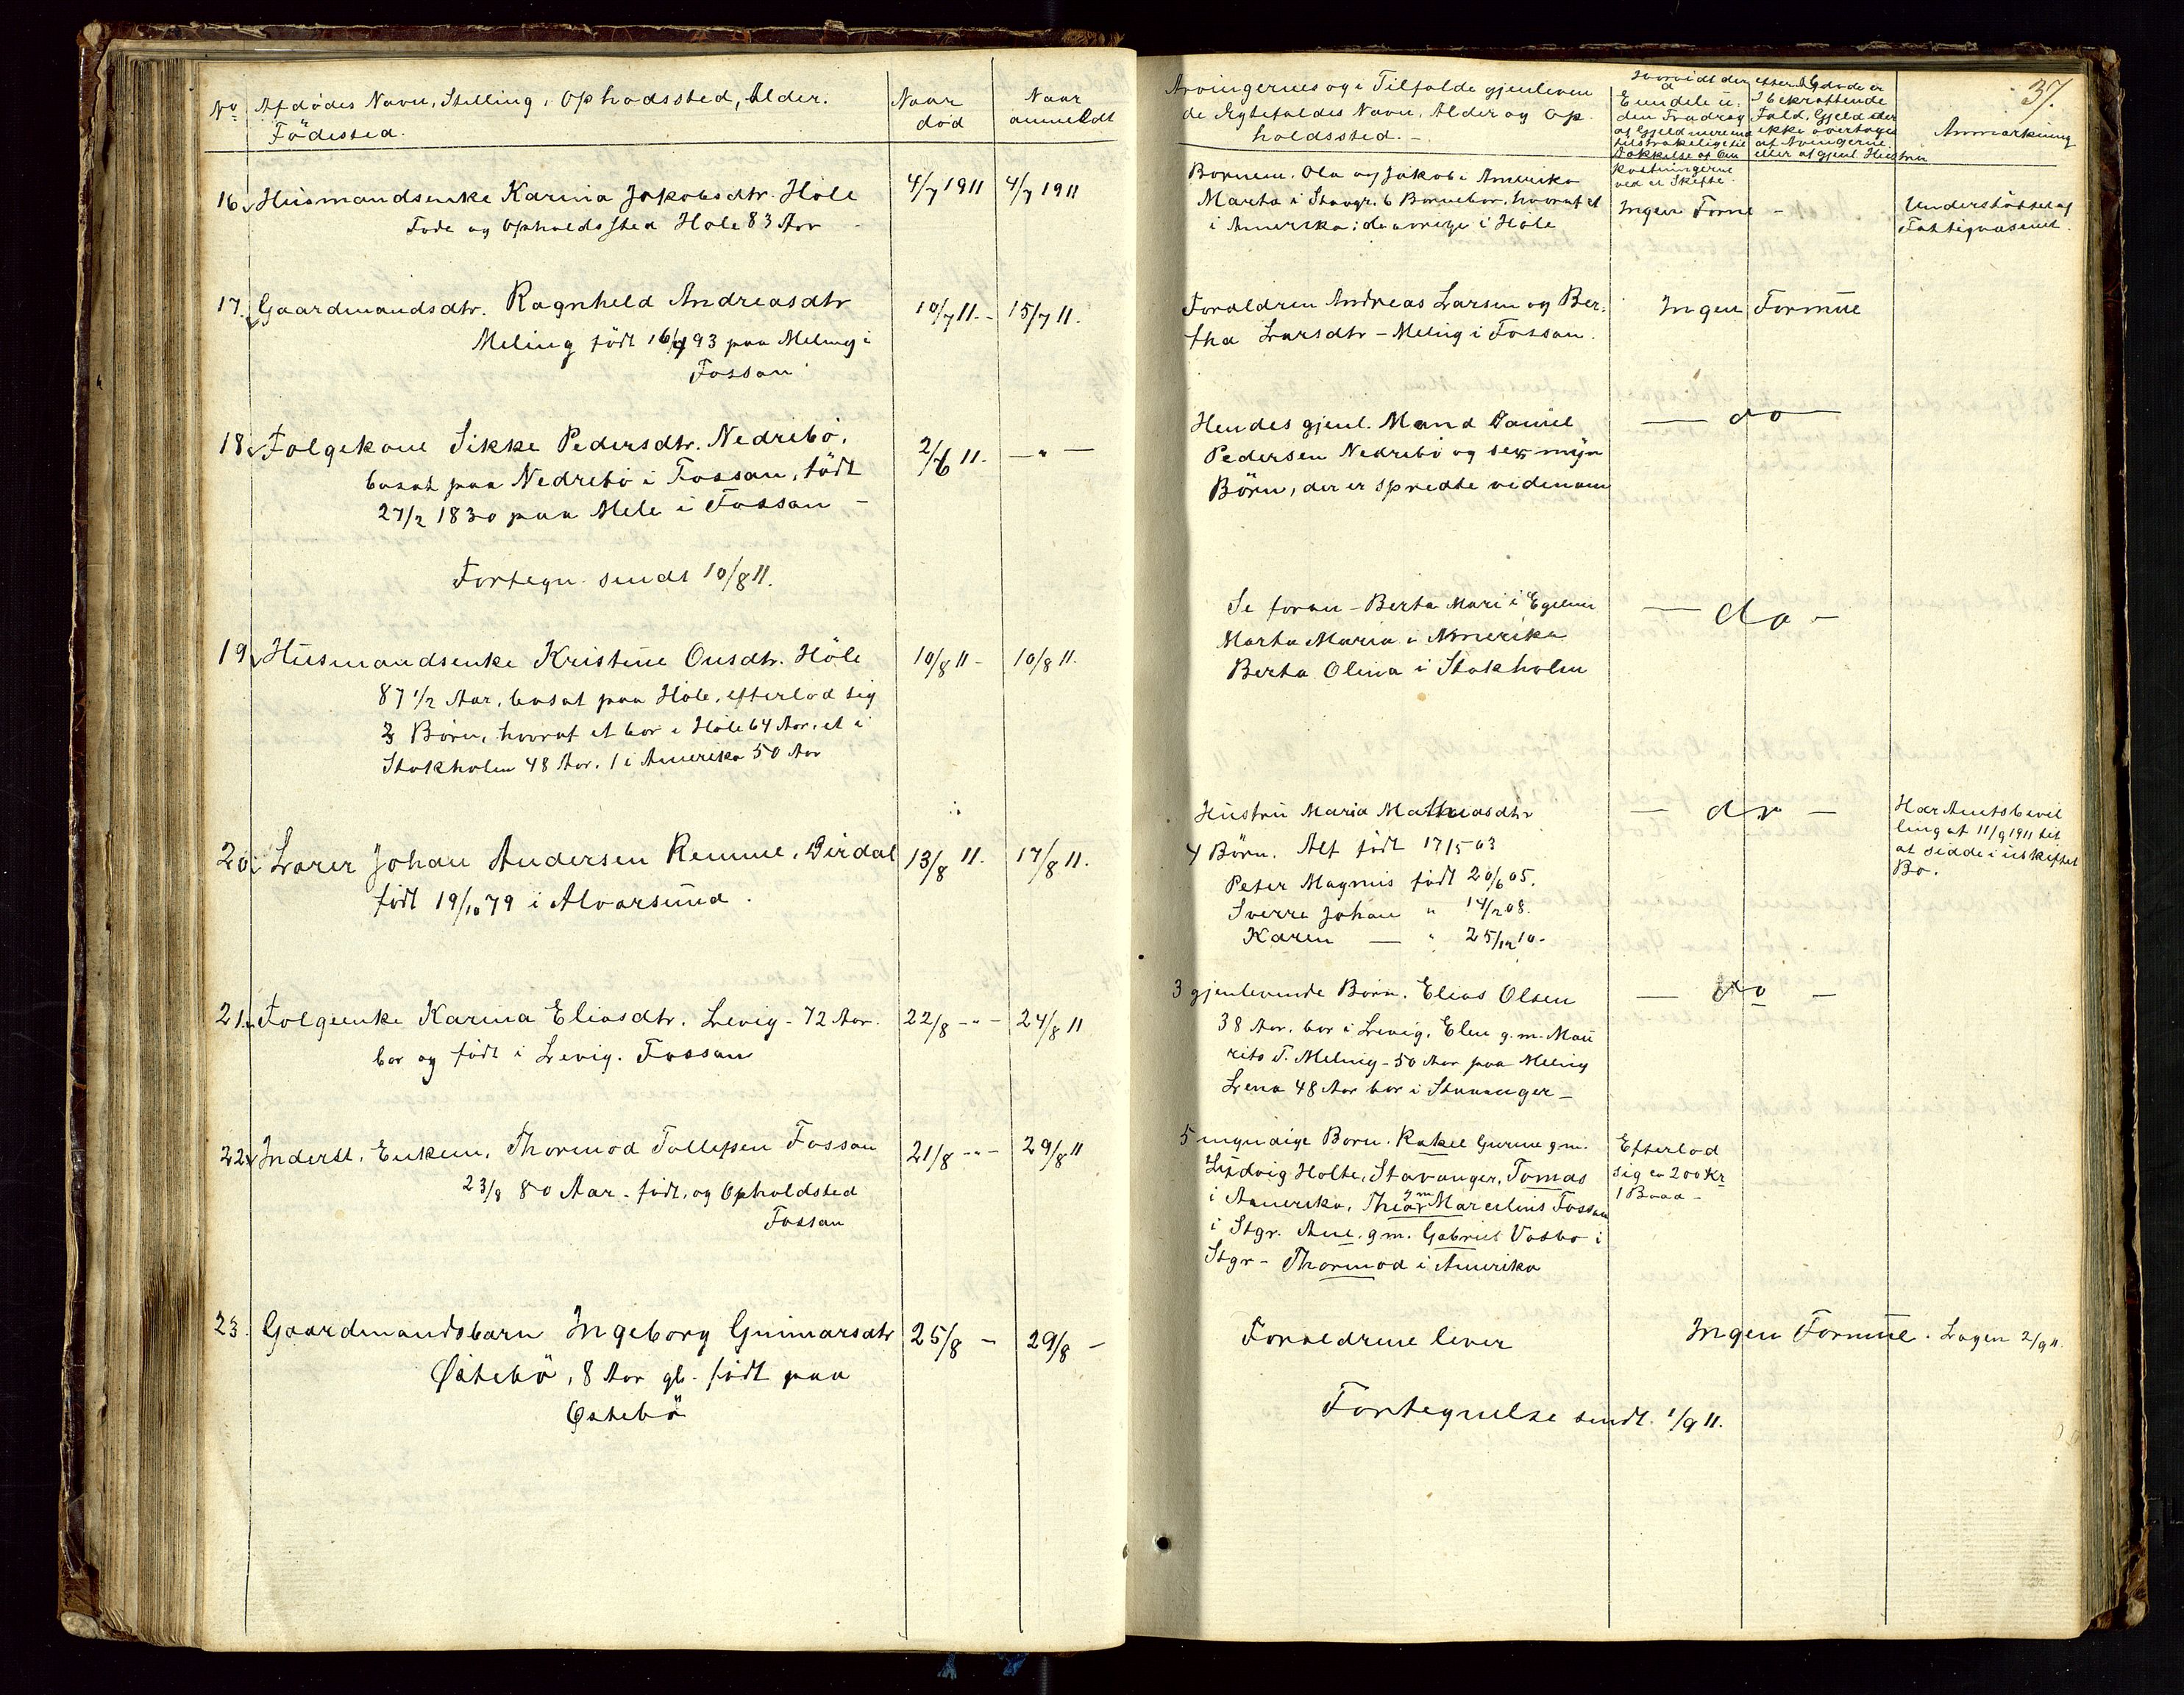 37.
No Afdödes Navn, Stilling, Ophodssted, Alder.
Födested.
Naar
död
Naar
anmeldt
Arvingernes og i Tilfalde gjenleven
de Egtefaldes Navn, Alder og Op
holdssted. -
Hvorvidt der efter Afdöde er
a
Eiendele u.
den Fradrag
af Gjeld mere end
tilstrækkelige til
Dækkelse af Om
kostningerne
ved et Skifte
b
I bekræftende
Fald, Gjeld der
ikke overtages
af Arvingerne
eller af gjenl. Hustru
Anmærkning
16. Husmandsenke Karina Jakobsdtr. Höle
Föde og Opholdssted Höle 83 Aar
4/7 1911
4/7 1911
Börnene. Ola og Jakob i Amerika
Marta i Stavgr. 6 Börnebörn, hvoraf et
i Amerika; de övrige i Höle
Ingen Forme -
Understöttet af
Fattigvæsenet.
17. Gaardmandsdtr. Ragnheld Andreasdtr
Meling födt 16/4 93 paa Meling i
Fossan
10/7 11. -
15/7 11.
Foraldren Andreas Larsen og Ber-
tha Larsdtr - Meling i Fossan.
Ingen Formue
18. Folgekone Sikke Pedersdtr. Nedrebö,
bosat paa Nedrebö i Fossan, födt
27/2 1830 paa Mele i Fossan -
2/6 11.
- " -
Hendes gjenl. Mand Daniel
Pedersen Nedrebö og sex myn
Börn, der er spredte viden om
- do -
Fortegn. sendt 10/8 11.
19. Husmandsenke Kristine Onsdtr. Höle
87 1/2 Aar, bosat paa Höle, efterlod sig
3 Börn, hvoraf et bor i Höle 64 Aar, et i
Stokholm 48 Aar. 1 i Amerika 50 Aar
10/8 11 -
10/8 11.
Se foran - Berta Mari i Egelien
Marta Maria i Amerika
Berta Olina i Stokholm
- do -
20. Lærer Johan Andersen Remme, Dirdal
födt 19/10 79 i Alvarsund.
13/8 11.
17/8 11.
Hustru Maria Mathiasdtr
4 Börn. Alf födt 17/5 03
Peter Magnus födt 20/6 05.
Sverre Johan " 14/2 08.
Karen - " 25/12 10.
- do -
Har Amtsbevil
ling af 11/9 1911 til
at sidde i uskiftet
Bo.
21. Folgeenke Karina Eliasdtr. Levig - 72 Aar.
bor og födt i Levig. Fossan
22/8 - " -
24/8 11
3 gjenlevende Börn. Elias Olsen
38 Aar, bor i Levig, Elen g. m. Mau
rits T. Meling - 50 Aar paa Meling
Lena 48 Aar bor i Stavanger -
- do -
22. Inderst, Enkem. Thormod Tollefsen Fossan
23/8 80 Aar - födt, og Opholdsted
Fossan
21/8 - " -
29/8 11
5 myndige Börn. Rakel Gurine g m.
Ludvig Holte, Stavanger, Tomas
i Amerika, Thea g m Marcelius Fossan
i Stgr. Ane. g m. Gabriel Vasbö i
Stgr - Thormod i Amerika
Efterlod
sig ca 200 Kr
1 Baad -
23. Gaardmandsbarn Ingeborg Gunnarsdtr
Østebö, 8 Aar gl. födt paa
Østebö
25/8 -
29/8 -
Foraldrene lever
Ingen Formue. Lagen 2/9 11.
Fortegnelse sendt. 1/9 11.